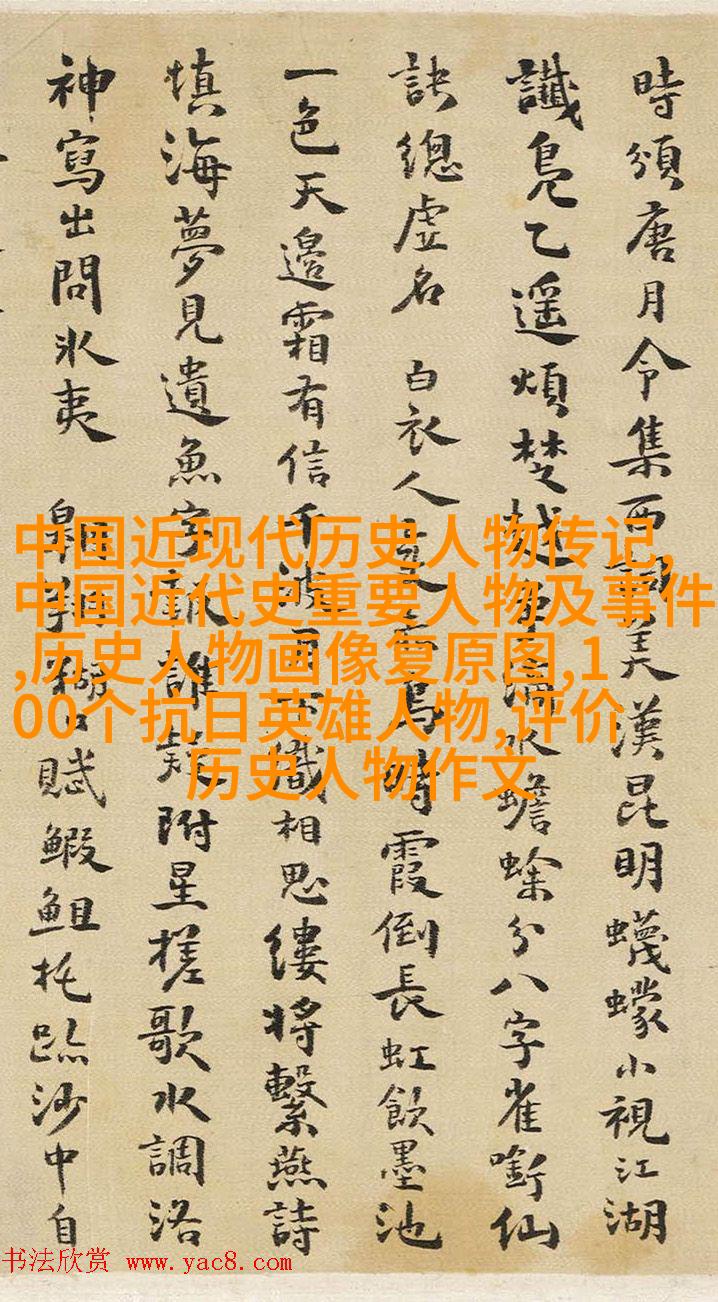 時頒唐月令集西美漢昆明蠛蠓小視江湖
讖鳧乙遥煩楚越水蟾蜍分八字雀銜仙
訣總虚名 白衣人霞倒長虹飲墨池
一色天邉霜有信千波織相思縷將繫燕詩
填海夢見遺魚字誰附星槎歌水調洛
神寫出問冰夷 湖口賦鰕鉏托跡沙中自
中国近现代历史人物传记,
中国近代史重要人物及事件
,历史人物画像复原图,1
00个抗日英雄人物,评价
历史人物作文
书法欣赏 www.yac8.com